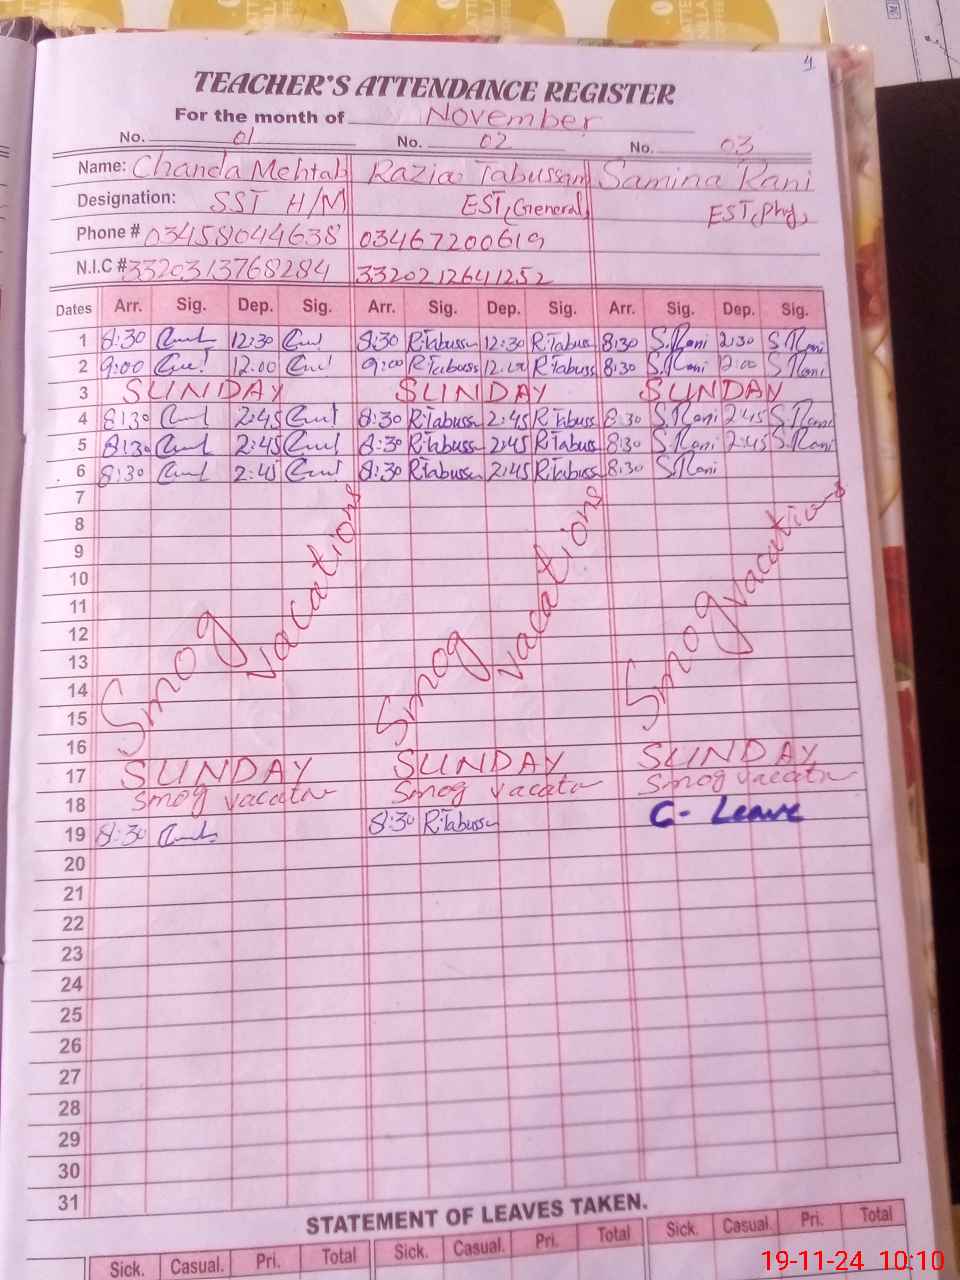 4
TEACHER'S ATTENDANCE REGISTER
For the month of November
No. 01 No. 02 No. 03
Name: Chanda Mehtab Razia Tabussam Samina Rani
Designation: SST H/M EST(General) EST(Phy)
Phone # 03458044638 03467200619
N.I.C # 3320313768284 3320212641252
Dates Arr. Sig. Dep. Sig. Arr. Sig. Dep. Sig. Arr. Sig. Dep. Sig.
1 8:30 12:30 8:30 R.Tabussm 12:30 R.Tabuss 8:30 S.Rani 2:30 S.Rani
2 9:00 12:00 9:00 R.Tabussm 12:00 R.Tabuss 8:30 S.Rani 2:00 S.Rani
3 SUNDAY SUNDAY SUNDAY
4 8:30 2:45 8:30 R.Tabussm 2:45 R.Tabuss 8:30 S.Rani 2:45 S.Rani
5 8:30 2:45 8:30 R.Tabussm 2:45 R.Tabuss 8:30 S.Rani 2:45 S.Rani
6 8:30 2:45 8:30 R.Tabussm 2:45 R.Tabuss 8:30 S.Rani
7
8
9
10
11
12
13
14
15
Smog vacations Smog vacations Smog vacations
16
17 SUNDAY SUNDAY SUNDAY
18 Smog vacation Smog vacation Smog vacation
19 8:30 8:30 R.Tabussm C- Leave
20
21
22
23
24
25
26
27
28
29
30
31
STATEMENT OF LEAVES TAKEN.
Sick. Casual. Pri. Total Sick. Casual. Pri. Total Sick. Casual. Pri. Total
19-11-24 10:10